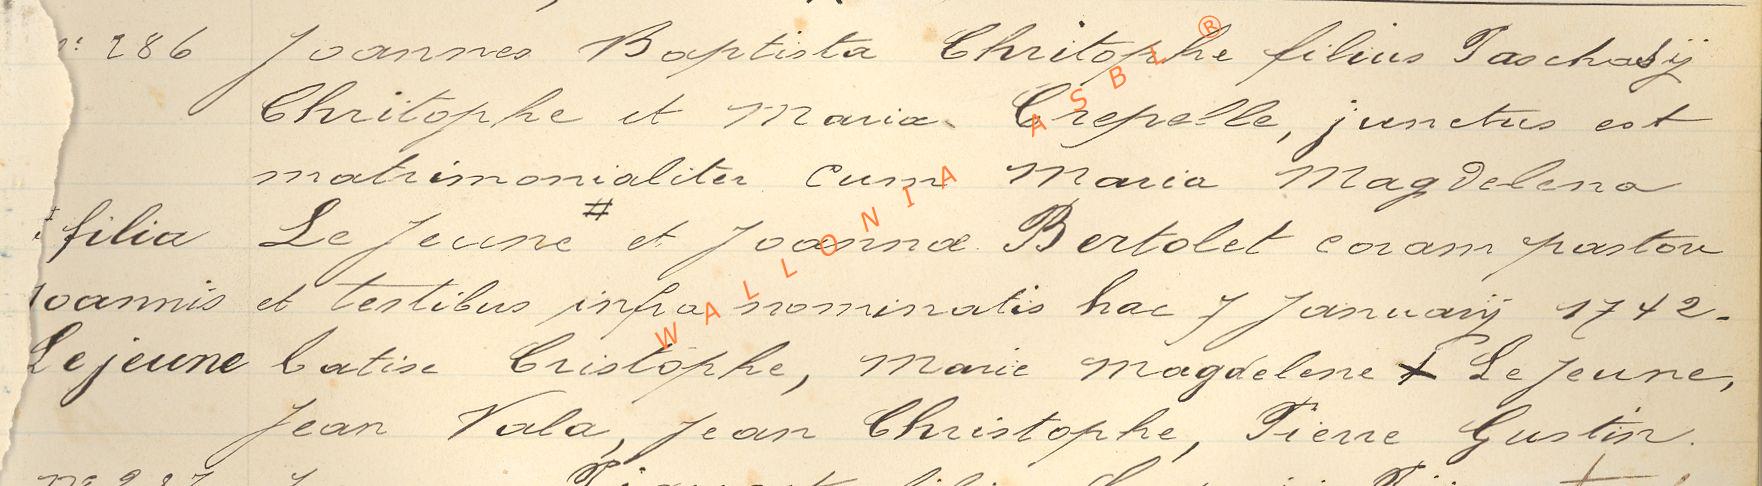 n° 286 Joannes Baptista Chritophe filius Paschasij
Chritophe et Maria Crepelle, junctus est
matrimonialiter cum Maria Magdelena
# filia Le Jeune # et Joannæ Bertolet coram pastore
Joannis et testibus infra nominatis hac 7 Januarij 1742.
Lejeune batise Cristophe, Marie Magdelene + Le Jeune,
Jean Vala, Jean Christophe, Pierre Gustin.
n° 287
WALLONIA ASBL ®